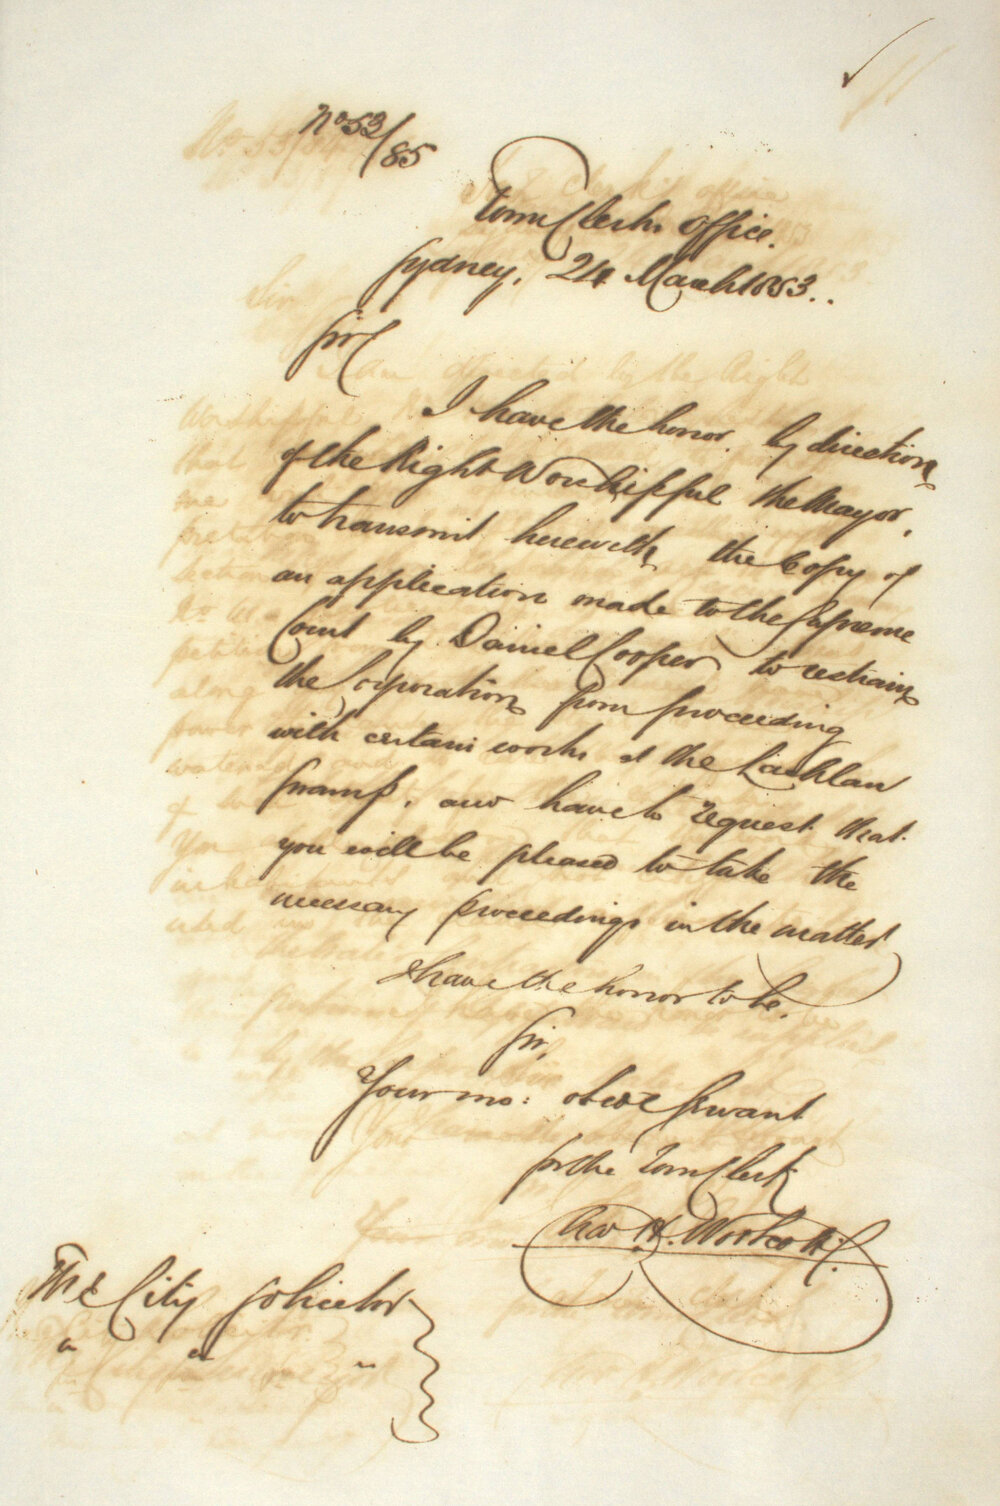 No 53/85
Town Clerks Office.
Sydney, 24 March 1853..
Sir
I have the honor, by direction
of the Right Worshipful the Mayor,
to transmit herewith the Copy of
an application made to the Supreme
Court by Daniel Cooper to restrain
the Corporation from proceeding
with certain works at the Lachlan
Swamp, and have to request that
you will be pleased to take the
necessary proceedings in the matter
I have the honor to be,
Sir,
Your mo: obedt Servant
for the Town Clerk
H. Wolcott
The City Solicitor
" " "